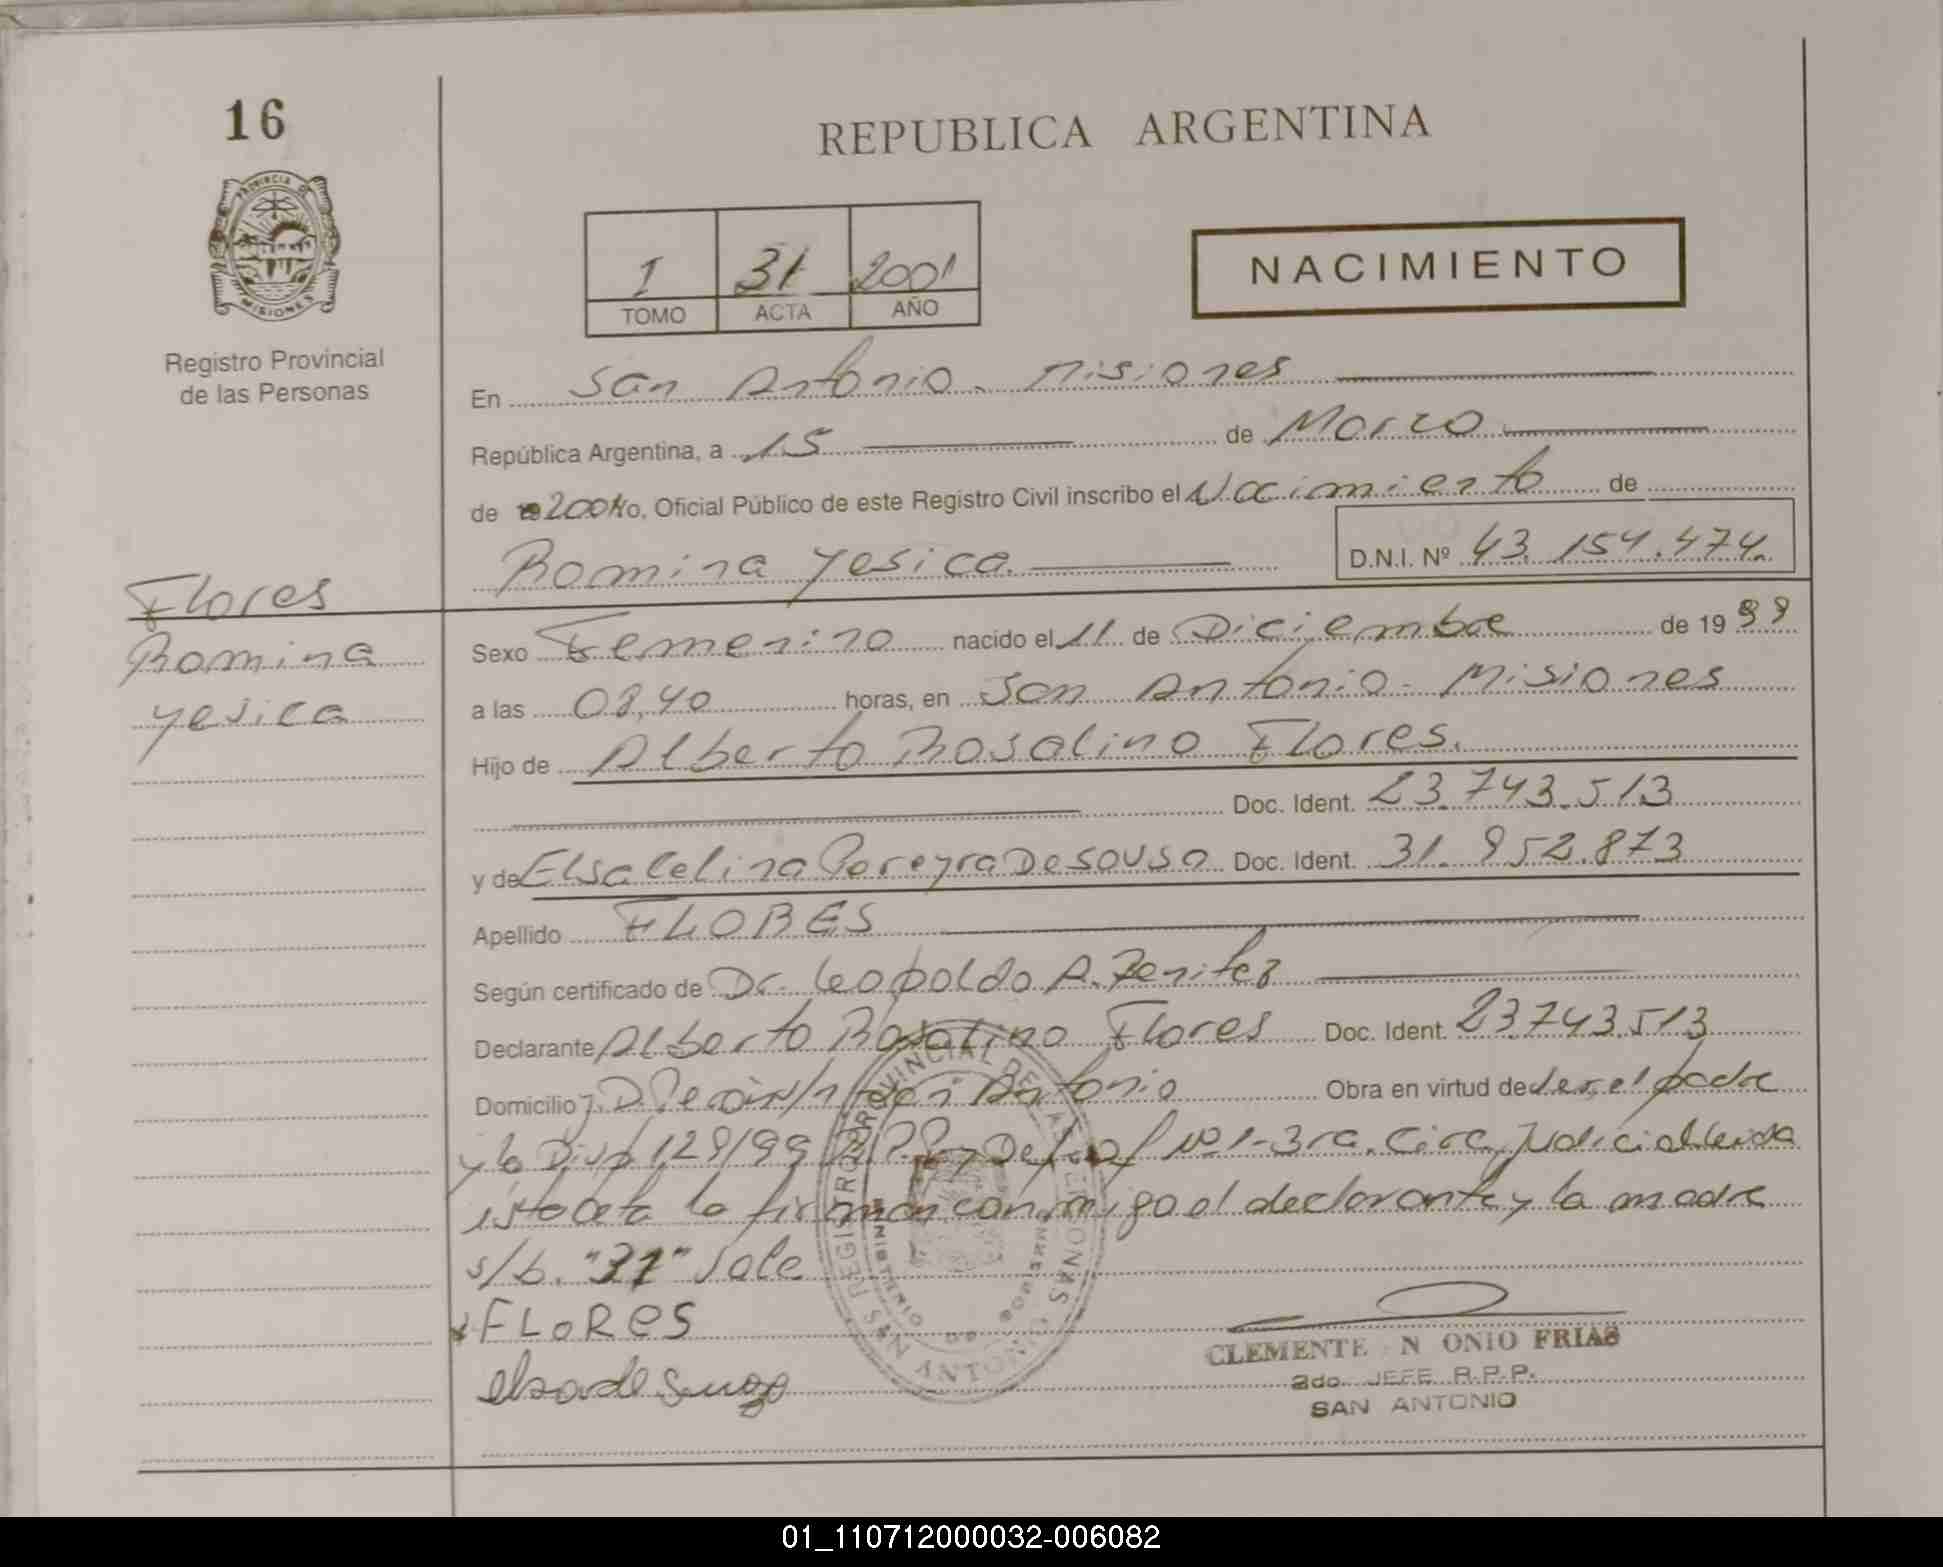 16
REPUBLICA ARGENTINA
PROVINCIA DE MISIONES
Registro Provincial
de las Personas
I 31 2001
TOMO ACTA AÑO
NACIMIENTO
En San Antonio - Misiones
República Argentina, a 15 de Marzo
de 19 2001 Yo, Oficial Público de este Registro Civil inscribo el Nacimiento de
Romina Yesica. D.N.I. Nº 43.154.474.
Flores
Romina
Yesica
Sexo Femenino nacido el 11 de Diciembre de 19 99
a las 08,40 horas, en San Antonio - Misiones
Hijo de Alberto Rosalino Flores.
Doc. Ident. 23.743.513
y de Elsa Celina Pereyra De Sousa Doc. Ident. 31.952.873
Apellido FLORES
Según certificado de Dr. Leopoldo A. Benitez
Declarante Alberto Rosalino Flores Doc. Ident. 23.743.513
Domicilio J.D. Perón S/n San Antonio Obra en virtud de ser el padre
y la Disp 129/99 R.P.P. y Def. of Nº 1-3ra. Circ. Judicial Leida
esta acta la firman conmigo el declarante y la madre
s/b. "31" Vale
FLORES
elsa de Souza
REGISTRO PROVINCIAL DE LAS PERSONAS
MINISTERIO DE GOBIERNO
SAN ANTONIO
CLEMENTE N ONIO FRIAS
2do. JEFE R.P.P.
SAN ANTONIO
01_110712000032-006082